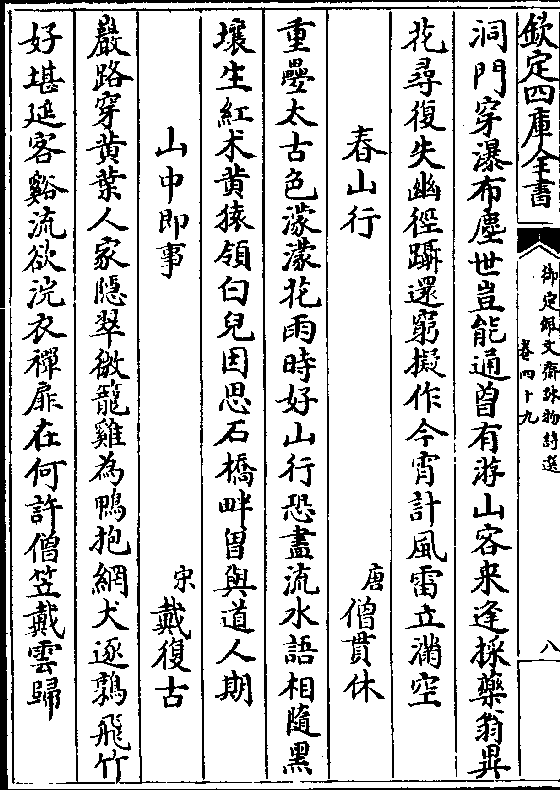 欽定四庫全書
御定佩文齋詠物詩選
卷四十九
八
洞門穿瀑布塵世豈能通曾有游山客来逢採藥翁異
花尋復失幽徑躡還窮擬作今宵計風雷立滿空
春山行
唐 僧貫休
重疊太古色濛濛花雨時好山行恐盡流水語相隨黑
壤生紅朮黄猿領白兒因思石橋畔曽與道人期
山中即事
宋 戴復古
嚴路穿黄葉人家隠翠微籠雞為鴨抱網犬逐鶉飛竹
好堪延客谿流欲浣衣禪扉在何許僧笠戴雲歸